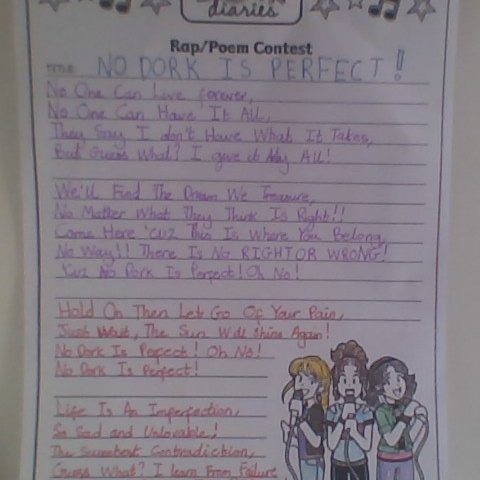 diaries
Rap/Poem Contest
TITLE: NO DORK IS PERFECT!
No One Can Live forever,
No One Can Have It All,
They Say I don't Have What It Takes,
But Guess What? I gave it My All!
We'll Find The Dream We Treasure,
No Matter What They Think Is Right!!
Come Here 'Cuz This Is Where You Belong,
No Way!! There Is No RIGHT OR WRONG!
'Cuz No Dork Is Perfect! Oh No!
Hold On Then Let Go Of Your Pain,
Just Wait, The Sun Will Shine Again!
No Dork Is Perfect! Oh No!
No Dork Is Perfect!
Life Is An Imperfection,
So Sad and Unlovable!
The Sweetest Contradiction,
Guess What? I learn From Failure